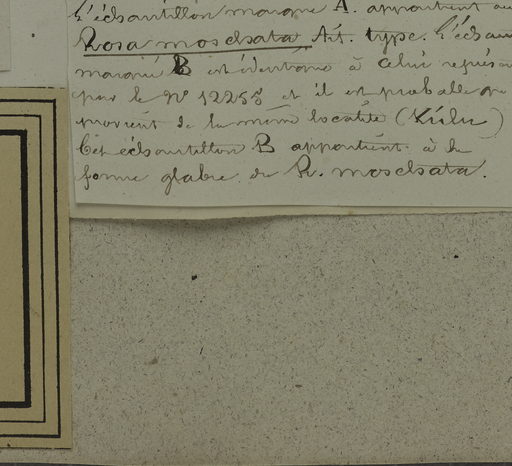 L'échantillon marqué A. appartient au
Rosa moschata Ait. type. L'échan
marqué B est identique à celui représen
par le N° 12255 et il est probable qu
provient de la même localité (Kúlu)
Cet échantillon B appartient à la
forme glabre du R. moschata.